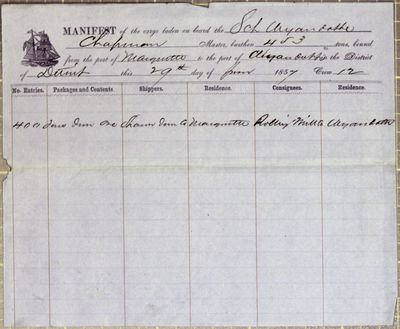 MANIFEST of the cargo laden on board the Sch Wyandotte
Chapman Master, burthen 453 tons, bound
from the port of Marquette to the port of Wyandotte in the District
of Detroit this 29th day of June 1857 Crew 12
No. Entries. Packages and Contents. Shippers. Residence. Consignees. Residence.
400 Tons Iron Ore Sharon Iron Co Marquette Rolling Mill Co Wyandotte